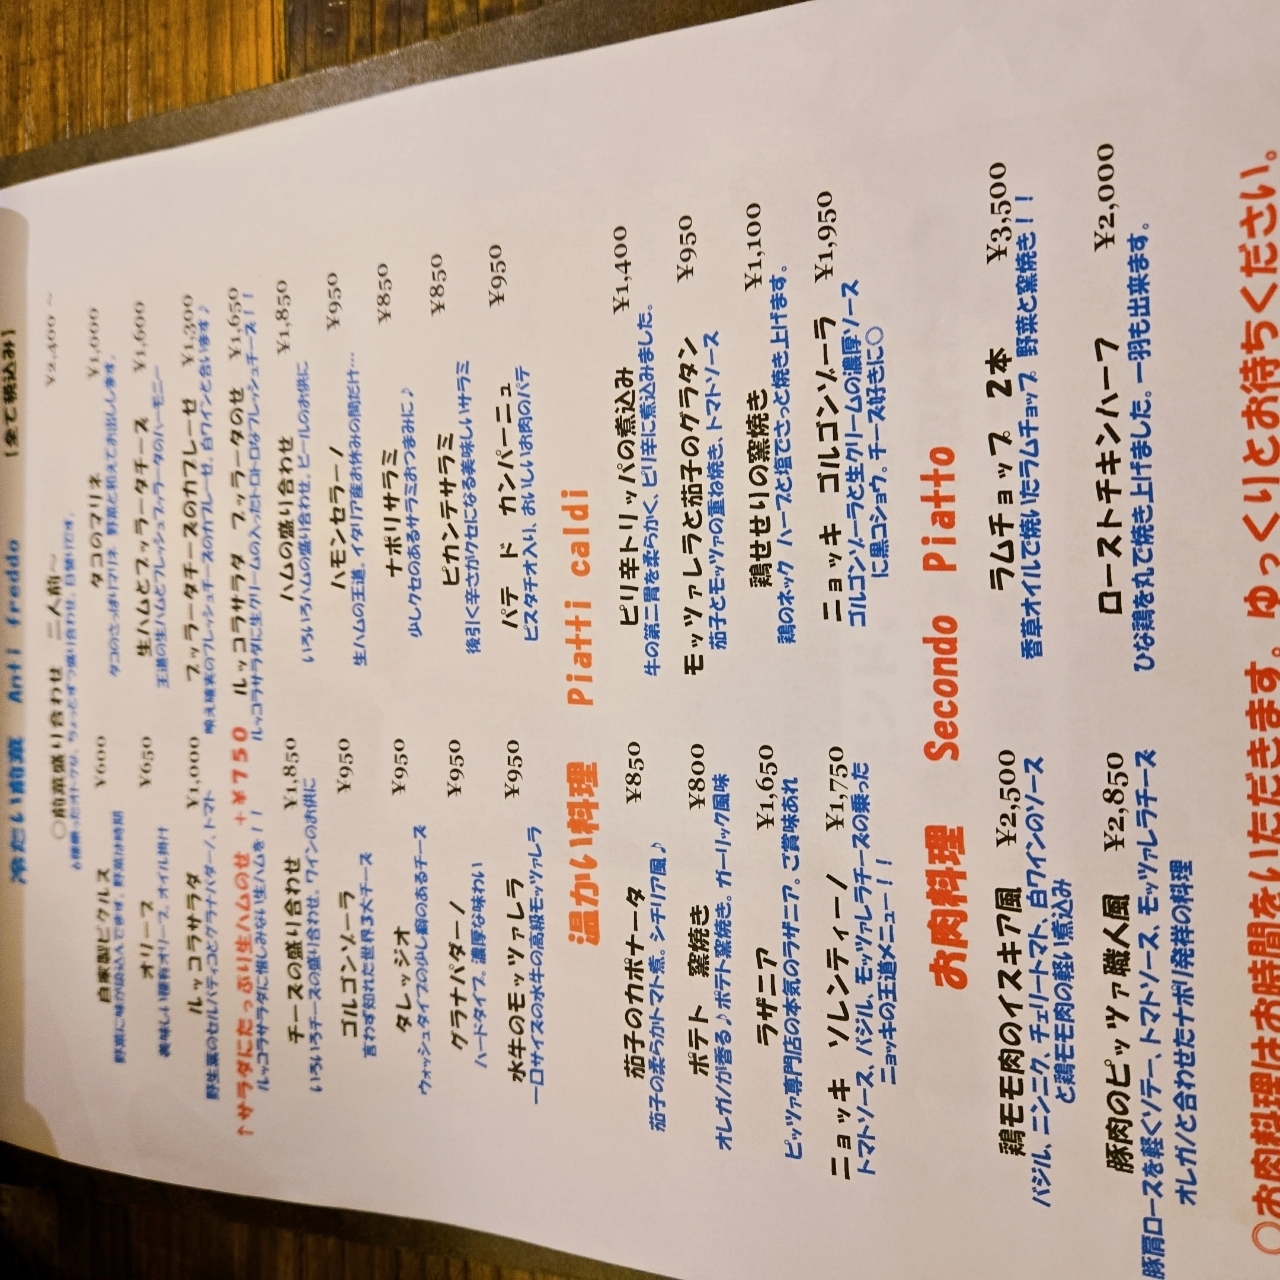 冷たい前菜 Anti freddo [全て税込み]
○前菜盛り合わせ 二人前～ ¥2,400～
お得感ったオトクな、ちょっとずつ盛り合わせ。日替りです。
自家製ピクルス ¥600
野菜に味が染込んでます。野菜は時期
タコのマリネ ¥1,000
タコのさっぱりマリネ 野菜と和えてお出しします。
オリーブ ¥650
美味しい種有オリーブ。オイル掛け
生ハムとブッラータチーズ ¥1,600
王道の生ハムとフレッシュブッラータのハーモニー
ルッコラサラダ ¥1,000
野生葉のセルバティコとグラナパダーノ、トマト
ブッラータチーズのカプレーゼ ¥1,300
映え確実のフレッシュチーズのカプレーゼ。白ワインと合います♪
↑サラダにたっぷり生ハムのせ +¥750
ルッコラサラダに惜しみない生ハムを！！
ルッコラサラダ ブッラータのせ ¥1,650
ルッコラサラダに生クリームの入ったトロトロなフレッシュチーズ！！
チーズの盛り合わせ ¥1,850
いろいろチーズの盛り合わせ。ワインのお供に
ハムの盛り合わせ ¥1,850
いろいろハムの盛り合わせ。ビールのお供に
ゴルゴンゾーラ ¥950
言わず知れた世界3大チーズ
ハモンセラーノ ¥950
生ハムの王道。イタリア産お休みの間だけ…
タレッジオ ¥950
ウォッシュタイプの少し癖のあるチーズ
ナポリサラミ ¥850
少しクセのあるサラミおつまみに♪
グラナパダーノ ¥950
ハードタイプ。濃厚な味わい
ピカンテサラミ ¥850
後引く辛さがクセになる美味しいサラミ
水牛のモッツァレラ ¥950
一口サイズの水牛の高級モッツァレラ
パテ ド カンパーニュ ¥950
ピスタチオ入り、おいしいお肉のパテ
温かい料理 Piatti caldi
茄子のカポナータ ¥850
茄子の柔らかトマト煮。シチリア風♪
ピリ辛トリッパの煮込み ¥1,400
牛の第二胃を柔らかく、ピリ辛に煮込みました。
ポテト 窯焼き ¥800
オレガノが香る♪ポテト窯焼き。ガーリック風味
モッツァレラと茄子のグラタン ¥950
茄子とモッツァの重ね焼き、トマトソース
ラザニア ¥1,650
ピッツァ専門店の本気のラザニア。ご賞味あれ
鶏せせりの窯焼き ¥1,100
鶏のネック ハーブと塩でさっと焼き上げます。
ニョッキ ソレンティーノ ¥1,750
トマトソース、バジル、モッツァレラチーズの乗った
ニョッキの王道メニュー！！
ニョッキ ゴルゴンゾーラ ¥1,950
ゴルゴンゾーラと生クリームの濃厚ソース
に黒コショウ。チーズ好きに○
お肉料理 Secondo Piatto
鶏モモ肉のイスキア風 ¥2,500
バジル、ニンニク、チェリートマト、白ワインのソース
と鶏モモ肉の軽い煮込み
ラムチョップ 2本 ¥3,500
香草オイルで焼いたラムチョップ 野菜と窯焼き！！
豚肉のピッツァ職人風 ¥2,850
豚肩ロースを軽くソテー、トマトソース、モッツァレラチーズ
オレガノと合わせたナポリ発祥の料理
ローストチキンハーフ ¥2,000
ひな鶏を丸で焼き上げました。一羽も出来ます。
○お肉料理はお時間をいただきます。ゆっくりとお待ちください。